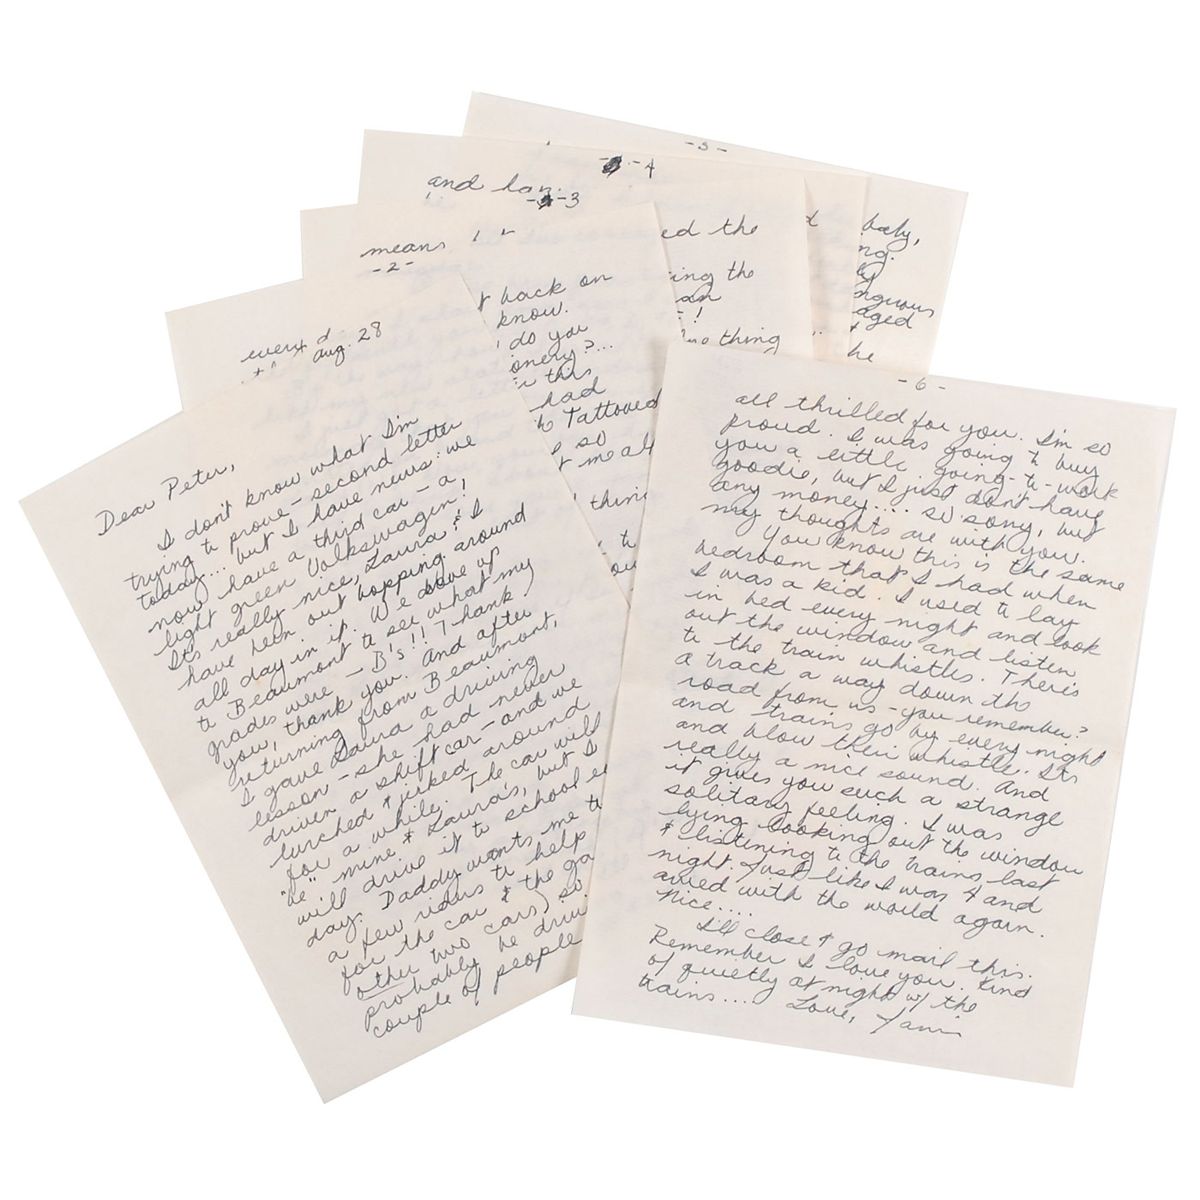 Aug. 28
Dear Peter,
I don't know what I'm
trying to prove - second letter
today... but I have news: we
now have a third car - a
light green Volkswagen!
Its really nice, Laura & I
have been out bopping around
all day in it. We dove up
to Beaumont to see what my
grades were - B's!! Thank
you, thank you. And after
returning from Beaumont,
I gave Laura a driving
lesson - she had never
driven a shift car - and we
lurched & jerked around
for a while. The car will
be "mine & Laura's", but I
will drive it to school
day. Daddy wants me to
a few riders to help
for the car & the ga
other two cars) so
probably be drivi
couple of people
-2-
every d
-3
means
t back on
know.
do you
onery?...
this
had
Tattooed
so
t me al
thin
-4
and
ed the
ing the
an
thing
-5-
baby,
ng.
ngerous
aged
he
-6-
all thrilled for you. I'm so
proud. I was going to buy
you a little going-to-work
goodie, but I just don't have
any money.... so sorry, but
my thoughts are with you.
You know this is the same
bedroom that I had when
I was a kid. I used to lay
in bed every night and look
out the window and listen
to the train whistles. There's
a track a way down the
road from us - you remember?
and trains go by every night
and blow their whistle. Its
really a nice sound. And
it gives you such a strange
solitary feeling. I was
lying looking out the window
& listening to the trains last
night. Just like I was 4 and
awed with the world again.
Nice....
I'll close & go mail this.
Remember I love you. Kind
of quietly at night w/ the
trains.... Love,